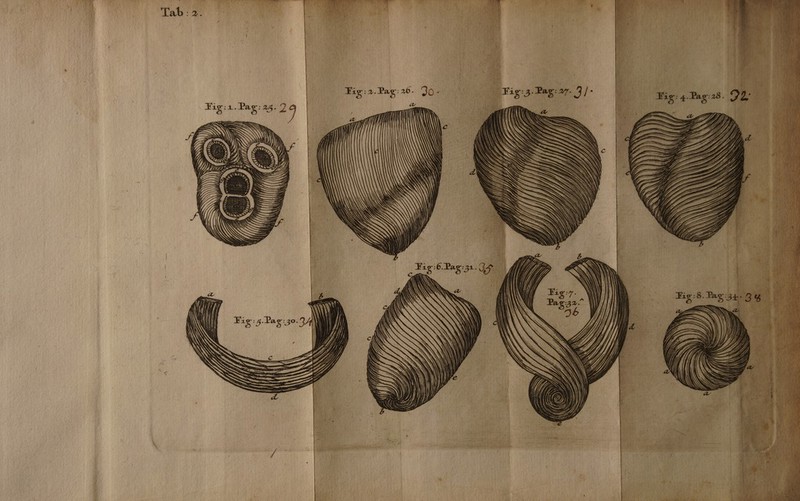 Tab: 2.
Fig: 1. Pag: 25. 29
Fig: 2. Pag: 26. 30.
Fig: 3. Pag: 27. 31.
Fig: 4. Pag: 28. 32.
f
f
f
f
a
a
c
c
c
b
a
c
d
b
a
c
d
c
f
b
Fig: 5. Pag: 30. 34
a
b
c
d
Fig: 6. Pag: 31. 35
c
a
c
c
c
b
Fig: 7.
Pag: 32.
36
a
b
c
d
Fig: 8. Pag: 34. 38
a
a
a
a
a